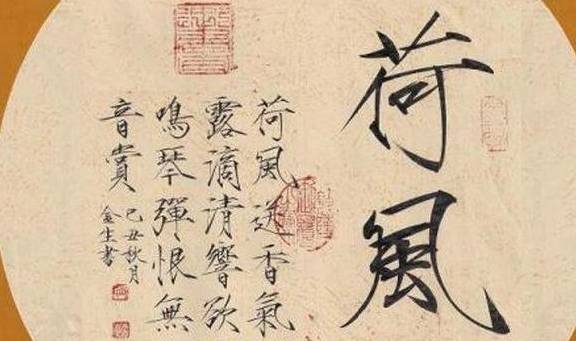 荷風
荷風送香氣
露滴清響欲
鳴琴彈恨無
音賞
己丑秋月
金生書